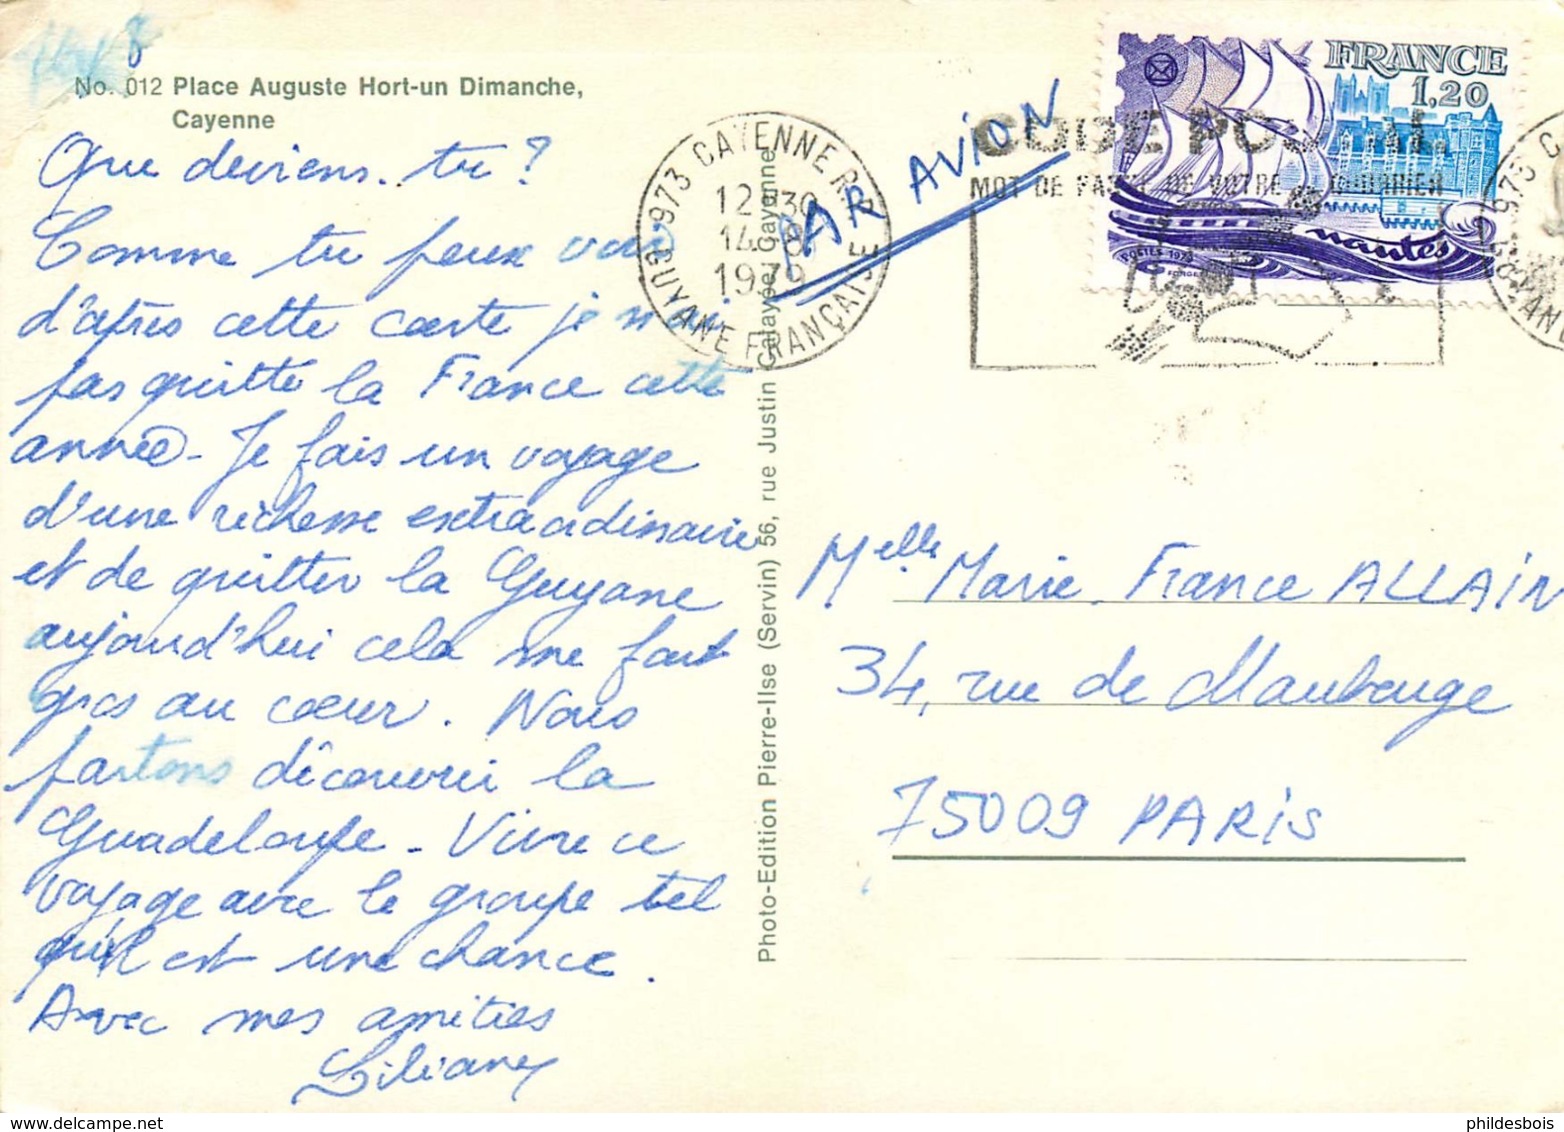 14/8
No. 012 Place Auguste Hort-un Dimanche,
Cayenne
Que deviens-tu ?
Comme tu peux voir
d'après cette carte je n'ai
pas quitté la France cette
année. Je fais un voyage
d'une richesse extraordinaire
et de quitter la Guyane
aujourd'hui cela me fait
gros au cœur. Nous
partons découvrir la
Guadeloupe. Vivre ce
voyage avec le groupe tel
qu'il est une chance.
Avec mes amitiés
Liliane
973 CAYENNE R.P.
12H30
14-8
1979
GUYANE FRANÇAISE
PAR AVION
CODE POSTAL
MOT DE PASSE DE VOTRE COURRIER
FRANCE
1,20
nantes
POSTES 1979
FORGET
Photo-Edition Pierre-Ilse (Servin) 56, rue Justin Catayée Cayenne
Melle Marie-France ALLAIN
34, rue de Maubeuge
75009 PARIS
phildesbois